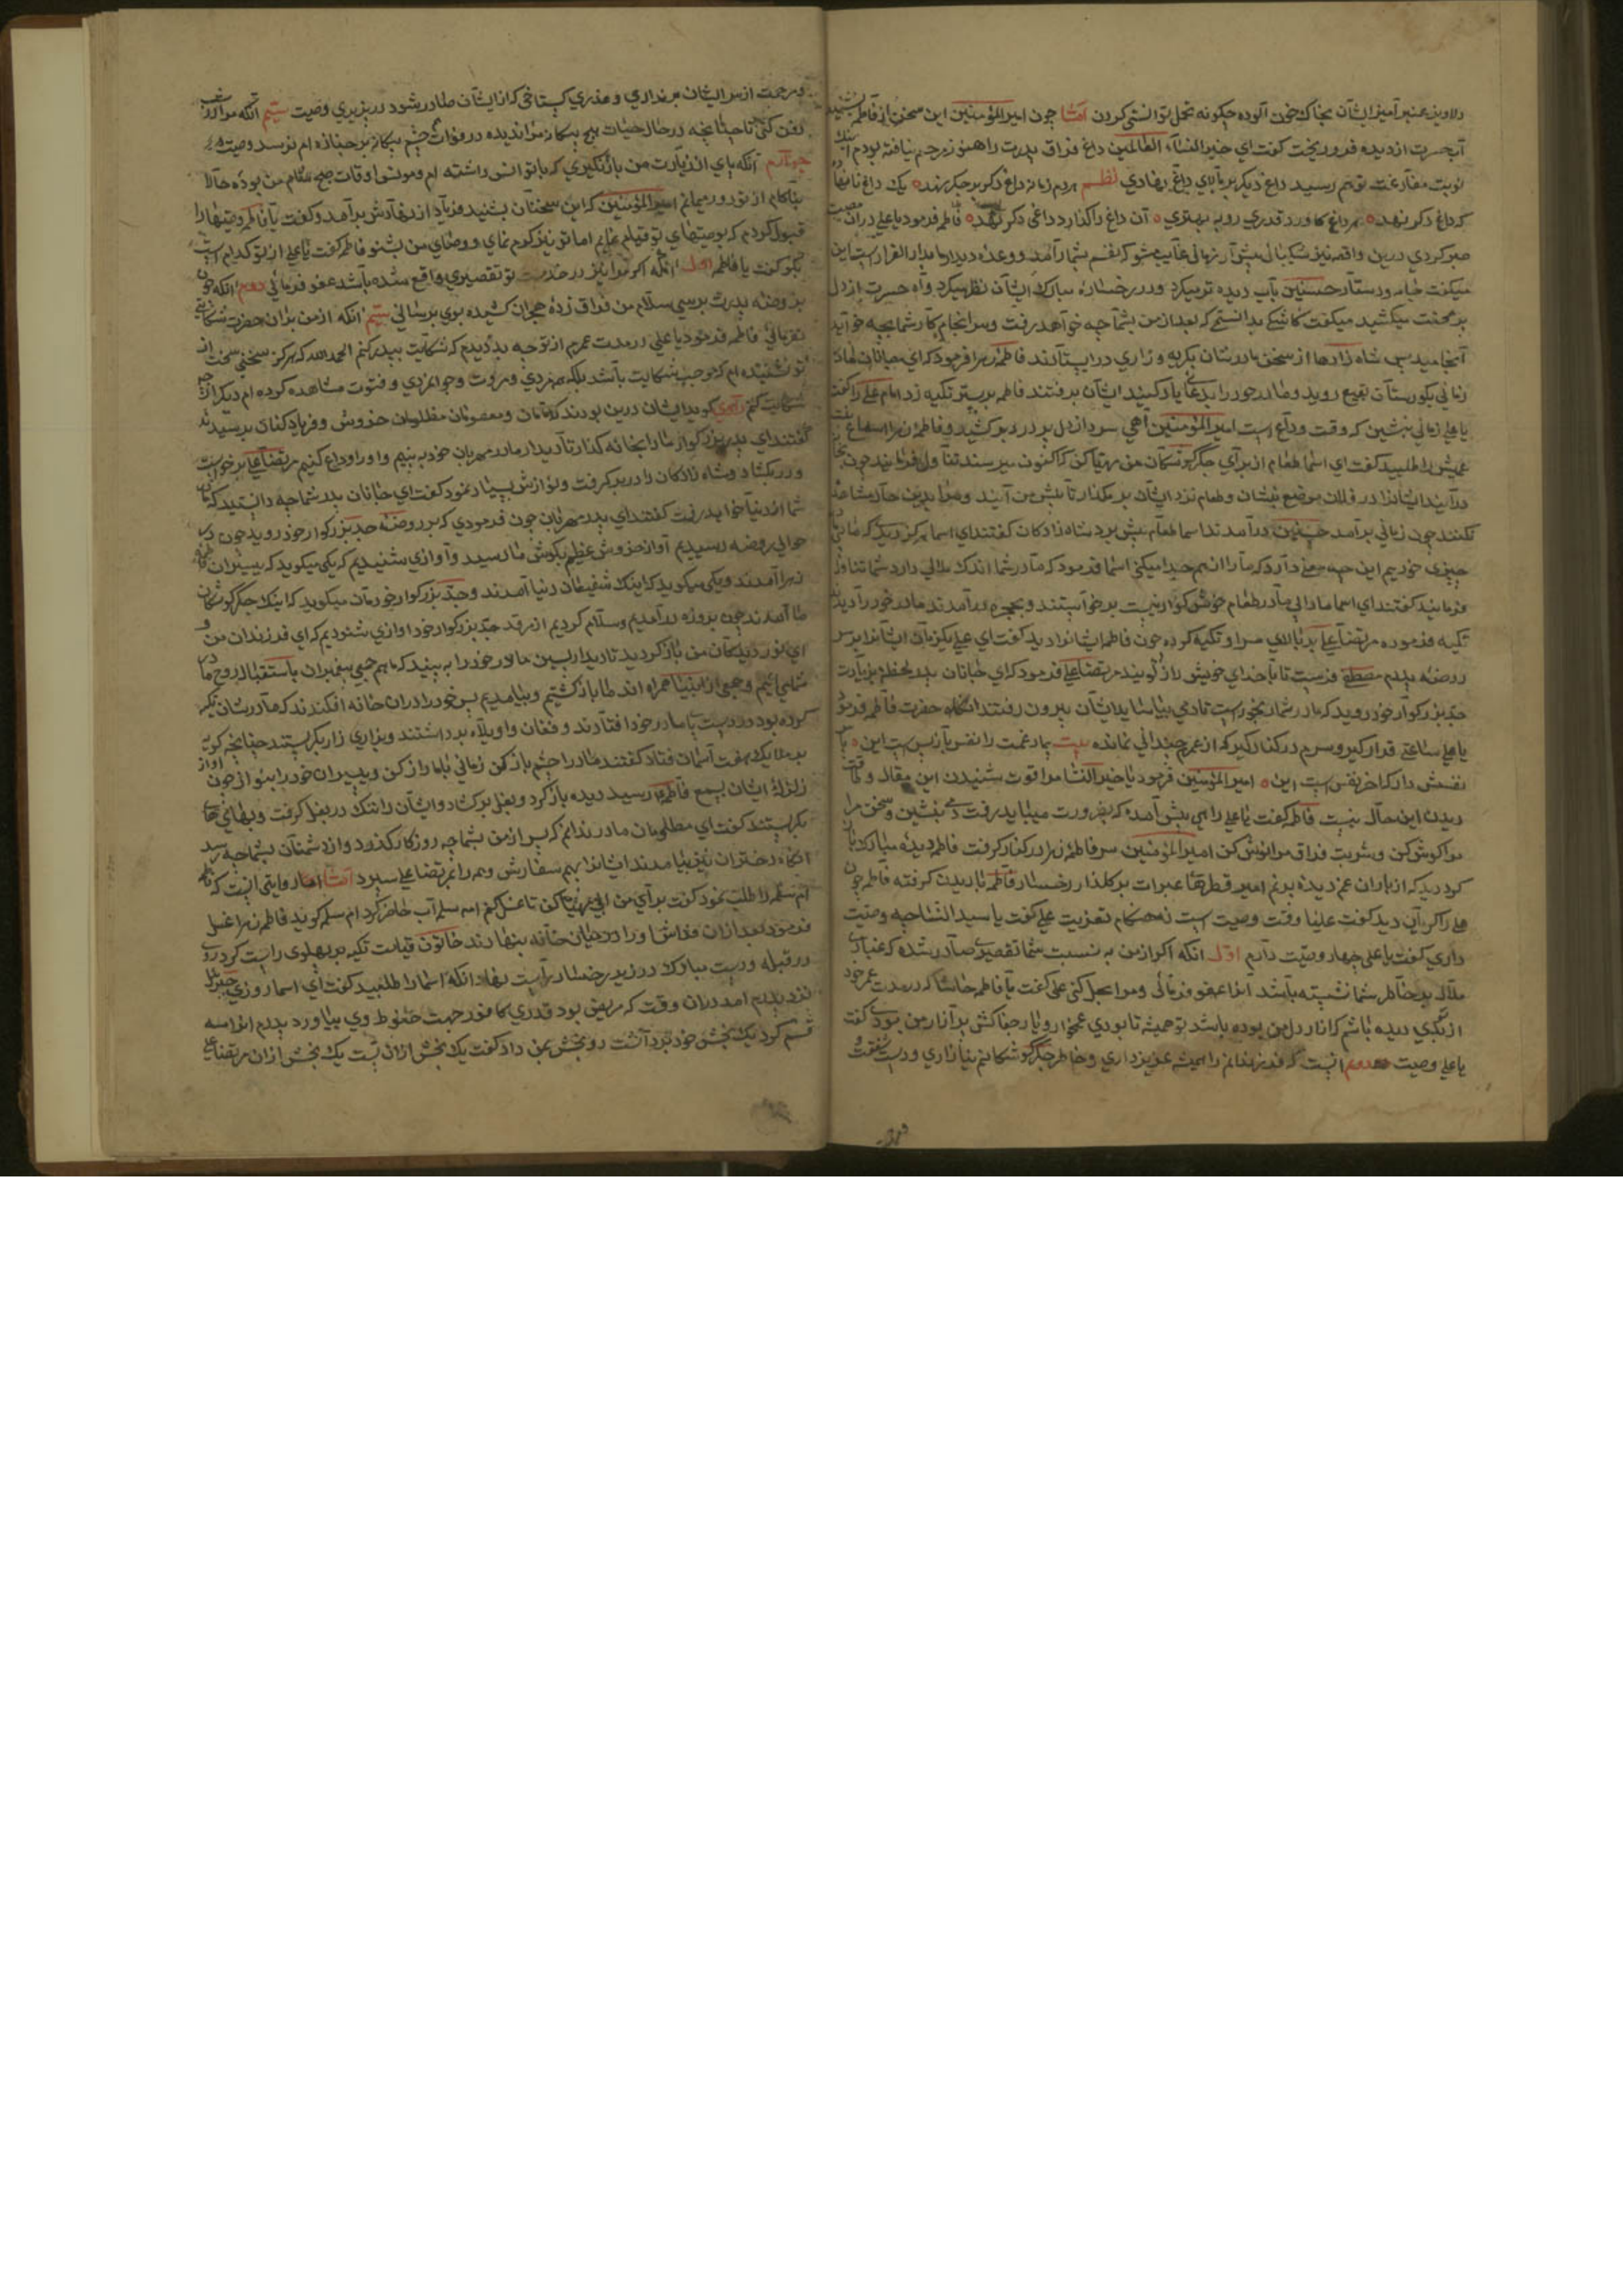 دلاویز عنبر آمیز ایشان بخاک و خون آلوده چگونه تحمل توانستی کردن القصه چون امیر المؤمنین این سخن از فاطمه بشنید
آب حسرت از دیده فرو ریخت گفت ای خیر النساء العالمین داغ فراق پدرت را هنوز مرهم نیافته بودم اینک
نوبت مفارقت تو هم رسید داغ دیگر بر بالای داغ نهادی نظم هر دم زمانه داغ دگر بر جگر نهد یک داغ
که داغ دگر نهد هر داغ کاورد قدری رو به بهتری آن داغ را گذارد و داغی دگر نهد فاطمه فرمود یا علی در آن مصیبت
صبر کردی درین واقعه نیز شکیبائی پیش آر زمانی غایب مشو که نفسم بشمار آمد و وعده دیدار ما بدار القرارست این
میگفت و جامه و دستار حسنین بآب دیده تر میکرد و در رخساره مبارک ایشان نظر میکرد و آه حسرت از دل
بر محنت میکشید میگفت کاشکی بدانستمی که بعد از من بشما چه خواهد رفت و سرانجام کار شما بچه خواهد
آنجامید پس شاه زادها از سخن مادرشان بگریه و زاری در ایستادند فاطمه زهرا فرمود که ای جانان مادر
زمانی بگورستان بقیع روید و مادر خود را بدعا یاد کنید ایشان برفتند فاطمه بر بستر تکیه زد امام علی را گفت
یا علی زمانی بنشین که وقت وداع است امیر المؤمنین آهی سرد از دل پر درد بر کشید و فاطمه زهرا اسما بنت
عمیس را طلبید گفت ای اسما طعام از برای جگر گوشگان من مهیا کن که اکنون میرسند
درآیند ایشانرا در فلان موضع بنشان و طعام نزد ایشان بر مگذار تا پیش من آیند و مرا بدین حال مشاهده
نکنند چون زمانی برآمد حسنین درآمدند اسما طعام پیش برد شاه زادگان گفتند ای اسما هرگز دیدی که ما بی مادر
چیزی خوردیم این چه معنی دارد که ما را از هم جدا میکنی اسما فرمود که مادر شما اندک ملالی دارد شما تناول
فرمایید گفتند ای اسما ما را بی مادر طعام خوش گوار نیست برخاستند و بحجره درآمدند مادر خود را دیدند
تکیه فرموده مرتضا علی بر بالای سر او تکیه کرده چون فاطمه ایشانرا دید گفت ای علی یکزمان ایشانرا بر سر
روضه پدرم مصطفی فرست تا با خدای خویش راز گویند مرتضا علی فرمود که ای جانان پدر لحظه بزیارت
جد بزرگوار خود روید که مادر شما رنجورست تا دمی بیاساید ایشان بیرون رفتند آنگاه حضرت فاطمه فرمود
یا علی ساعتی قرار گیر و سرم در کنار گیر که از عمرم چندانی نمانده بیت بیمار غمت را نفس باز پس است این
نفسش دار که آخر نفس است این امیر المؤمنین فرمود یا خیر النسا مرا قوت شنیدن این مقال و طاقت
دیدن این حال نیست فاطمه گفت یا علی راهی پیش آمده که بضرورت میباید رفت دمی بنشین و سخن مرا
گوش کن و شربت فراق مرا نوش کن امیر المؤمنین سر فاطمه زهرا در کنار گرفت فاطمه دیده مبارک باز
کرد دید که از باران غم دیده پر نم امیر قطرهای عبرات بر گلزار رخسار فاطمه باریدن گرفته فاطمه چون
علی را گریان دید گفت علیا وقت وصیت است نه هنگام تعزیت علی گفت یا سید النسا چه وصیت
داری گفت یا علی چهار وصیت دارم اول آنکه اگر از من به نسبت شما تقصیری صادر شده که غباری
ملال بر خاطر شما نشسته باشد آنرا عفو فرمائی و مرا بحل کنی علی گفت یا فاطمه حاشا که در مدت عمر خود
از تو بدی دیده باشم که آزار دل من بوده باشد تو همیشه تا بودی غمخوار و یار جفاکش بر آزار من بودی گفت
یا علی وصیت دوم آنست که فرزندانم را همیشه عزیز داری و خاطر جگر گوشگانم نیازاری و دست شفقت
و مرحمت از سر ایشان برنداری و عذری گستاخی که از ایشان صادر شود درپذیری وصیت سیم آنکه مرا در شب
دفن کنی تا چنانچه در حال حیات هیچ بیگانه مرا ندیده در وفات چشم بیگانه بر جنازه ام نرسد وصیت
چهارم آنکه پای از زیارت من باز نگیری که با تو انس داشته ام و مونس اوقات صبح و شام من بوده حالا
بناکام از تو دور میمانم امیر المؤمنین که این سخنان بشنید فریاد از نهادش برآمد و گفت یا فاطمه وصیتها را
قبول کردم که بوصیتهای تو قیام نمایم اما تو نیز کرم نمای و وصای من بشنو فاطمه گفت یا علی از تو کدام است
بگو گفت یا فاطمه اول آنکه اگر مرا نیز در خدمت تو تقصیری واقع شده باشد عفو فرمائی دوم آنکه چون
بروضه پدرت برسی سلام من فراق زده هجران کشیده بوی برسانی سیم آنکه از من بدان حضرت شکایتی
نفرمائی فاطمه فرمود یا علی در مدت عمرم از تو چه بد دیدم که شکایت به پدر کنم الحمد لله که هرگز سخنی سخت از
تو نشنیده ام که موجب شکایت باشد بلکه همه مردی و مروت و جوانمردی و فتوت مشاهده کرده ام دیگر از چه
شکایت کنم راوی گوید ایشان درین بودند که امامان و معصومان مظلومان خروش و فریاد کنان برسیدند
گفتند ای پدر بزرگوار ما را بخانه گذار تا دیدار مادر مهربان خود بینیم و او را وداع کنیم مرتضا علی برخواست
و در بگشاد و شاه زادگان را در بر گرفت و نوازش بسیار نمود گفت ای جانان پدر شما چه دانستید که مادر
شما از دنیا خواهد رفت گفتند ای پدر مهربان چون فرمودی که بر روضه جد بزرگوار خود روید چون در
حوالی روضه رسیدیم آواز خروش عظیم بگوش ما رسید و آوازی شنیدیم که یکی میگوید که یتیمان فاطمه
زهرا آمدند و یکی میگوید که اینک شفیعان دنیا آمدند و جد بزرگوار خودمان میگوید که اینک جگر گوشگان
ما آمدند چون بروضه درآمدیم و سلام کردیم از مرقد جد بزرگوار خود آوازی شنودیم که ای فرزندان من و
ای نور دیدگان من باز گردید تا دیدار پسین مادر خود را به بینید که ما هم جمعی پیغمبران باستقبال روح مادر
شما میائیم و جمعی از انبیا همراه اند ما باز گشتیم و بیامدیم پس خود را دران خانه افکندند که مادرشان تکیه
کرده بود در دست و پا مادر خود افتادند و فغان و اویلاه برداشتند و بزاری زار بگریستند چنانچه گریه
بر ملایک هفت آسمان فتاد گفتند مادرا چشم باز کن زمانی با ما راز کن و یتیمان خود را بنواز چون آواز
زلزله ایشان بسمع فاطمه رسید دیده باز کرد و بغل برگشاد و ایشان را تنگ در بغل گرفت و بهایهای
بگریستند گفت ای مظلومان مادر ندانم که پس از من بشما چه روزگار گذرد و از دشمنان بشما چه رسد
آنگاه دختران نیز بیامدند ایشانرا بهم سفارش و همه را بمرتضا علی سپرد القصه روایتی آنست که فاطمه
ام سلمه را طلب نمود گفت برای من آبی مهیا کن تا غسل کنم ام سلمه آب حاضر کرد ام سلمه گوید فاطمه زهرا غسل
فرمود بعد ازان فراش او را در میان خانه بنهادند خاتون قیامت تکیه بر پهلوی راست کرد روی
در قبله و دست مبارک در زیر رخسار راست نهاد آنگه اسما را طلبید گفت ای اسما روزی جبرئیل
نزد پدرم آمد دران وقت که مریض بود قدری کافور جهت حنوط وی بیاورد پدرم آنرا سه
قسم کرد یک بخش خود برداشت دو بخش بمن داد گفت یک بخش ازان تست یک بخش ازان مرتضا علی